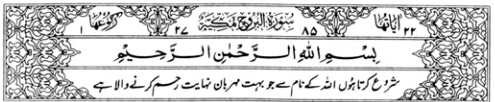 اٰیاتھا ۲۲ سُوْرَۃُ الْبُرُوْجِ مَکِّیَّۃٌ ۸۵ ۲۷ رکوعھا ۱
بِسْمِ اللّٰهِ الرَّحْمٰنِ الرَّحِیْمِ
شروع کرتا ہوں اللہ کے نام سے جو بہت مہربان نہایت رحم کرنے والا ہے